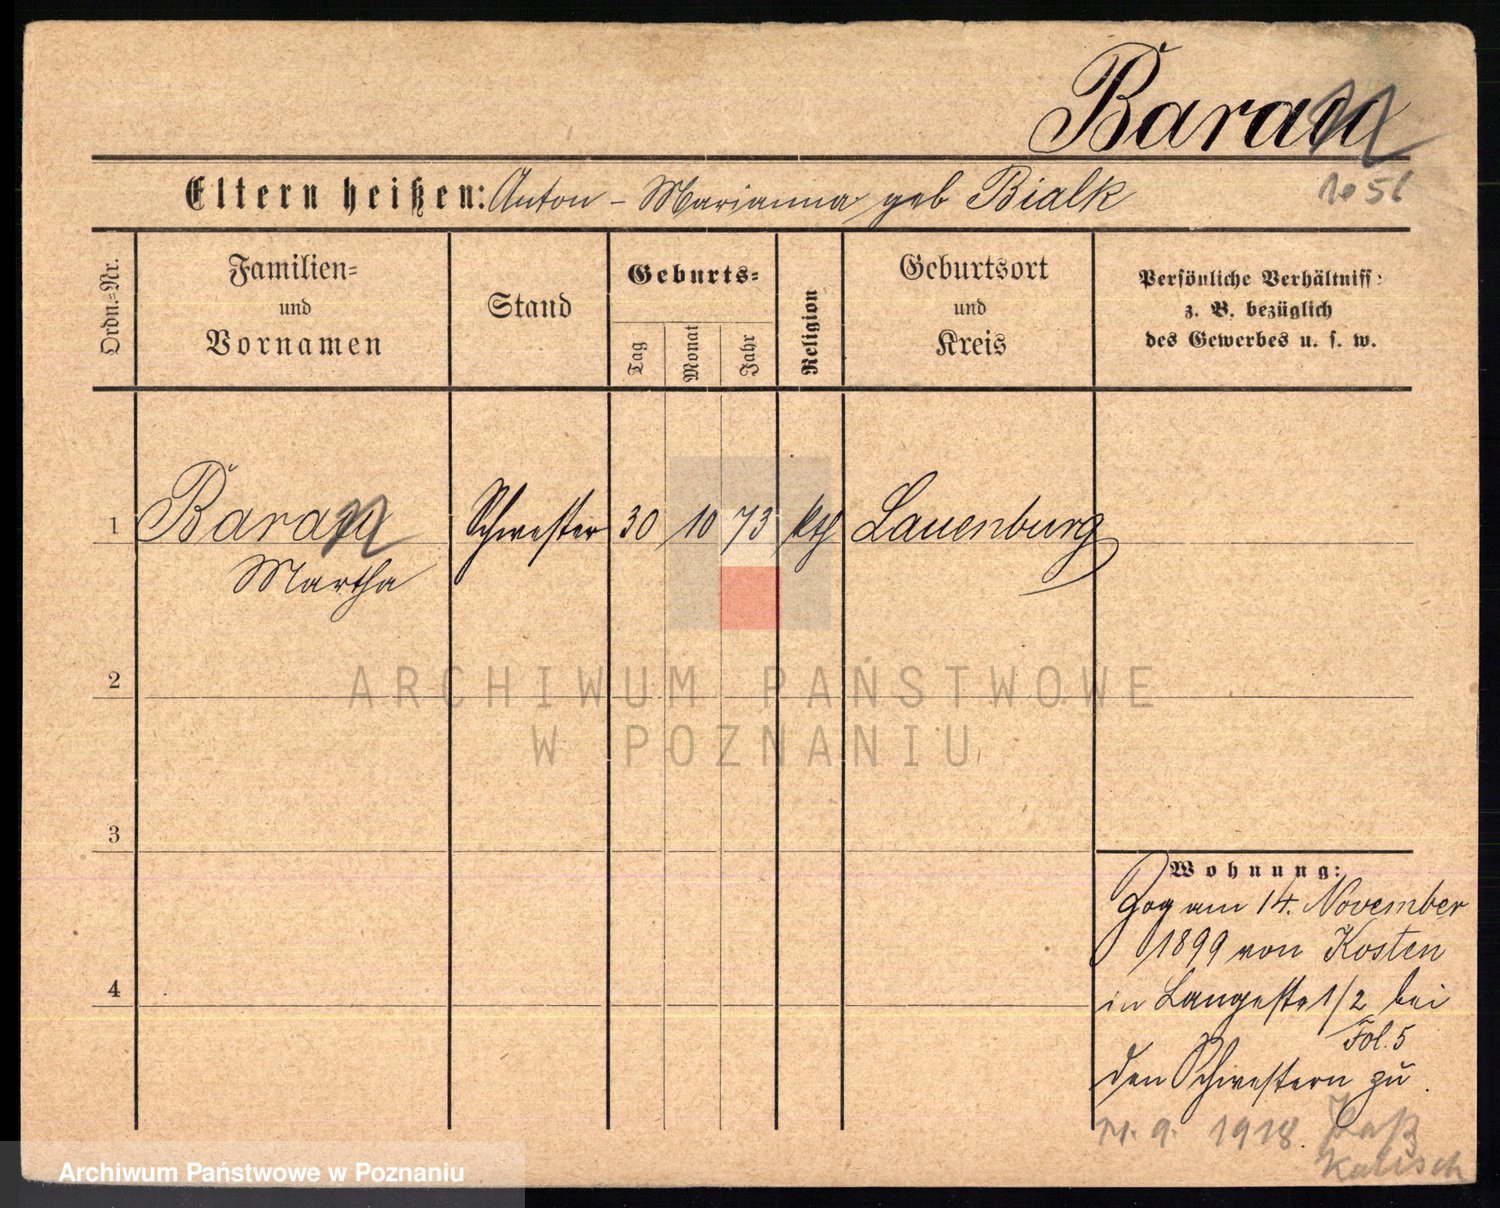 Baran
1056
Eltern heißen: Anton - Marianna geb Bialk
Ordn.-Nr.
Familien-
und
Vornamen
Stand
Geburts-
Tag
Monat
Jahr
Religion
Geburtsort
und
Kreis
Persönliche Verhältniss:
z. B. bezüglich
des Gewerbes u. s. w.
1 Baran Schwester 30 10 73 kth Lauenburg
Martha
2
3
4
Wohnung:
Zog am 14. November
1899 von Kosten
in Langestr 1/2 bei
Fol. 5
den Schwestern zu
11. 9. 1918. Paß
Kalisch
ARCHIWUM PAŃSTWOWE
W POZNANIU
Archiwum Państwowe w Poznaniu